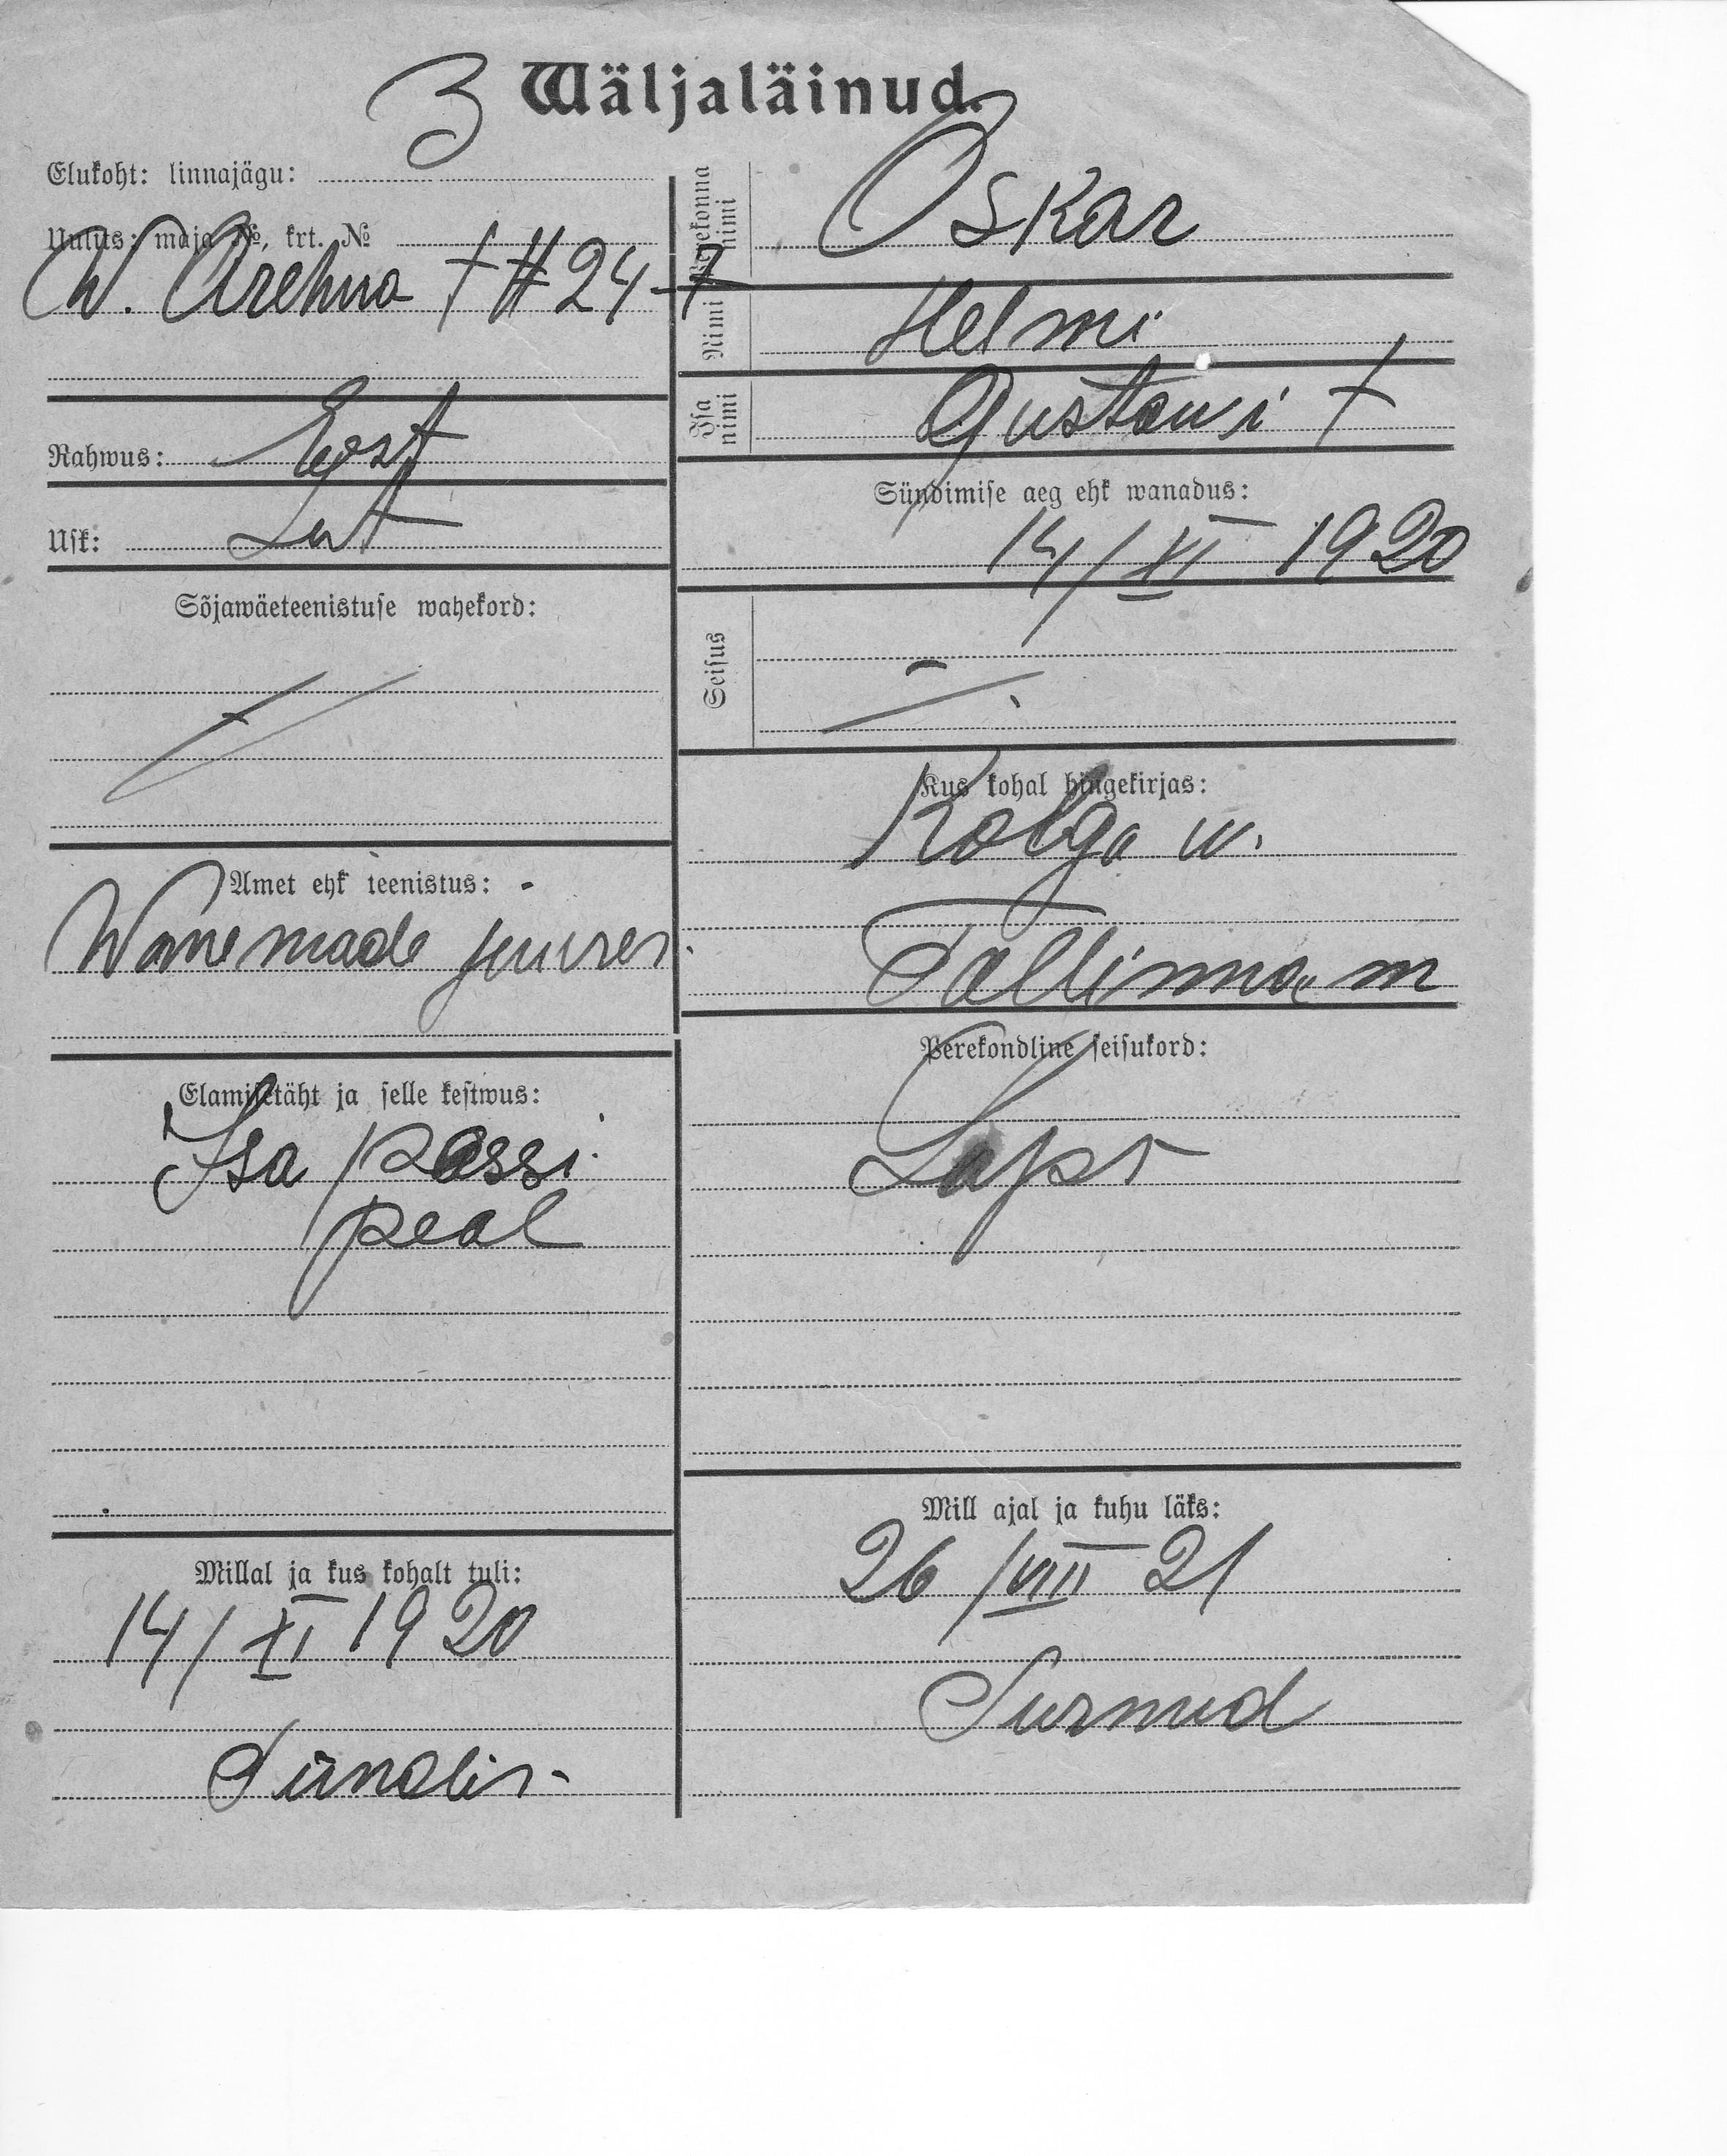 3 Wäljaläinud.
Elukoht: linnajägu:
Uulits: maja №, krt. №
W. Arehna t # 24-7
Rahwus: Eest
Usk: Lut
Sõjawäeteenistuse wahekord:
Amet ehk teenistus:
Wanemade juures.
Elamisetäht ja selle kestwus:
Isa passi
peal
Millal ja kus kohalt tuli:
14/XI 1920
Sündis-
Perekonna nimi
Oskar
Nimi
Helmi
Isa nimi
Gustawi t
Sündimise aeg ehk wanadus:
14/XI 1920
Seisus
Kus kohal hingekirjas:
Kolga w.
Tallinna m
Perekondline seisukord:
Laps
Mill ajal ja kuhu läks:
26/VIII 21
Surnud